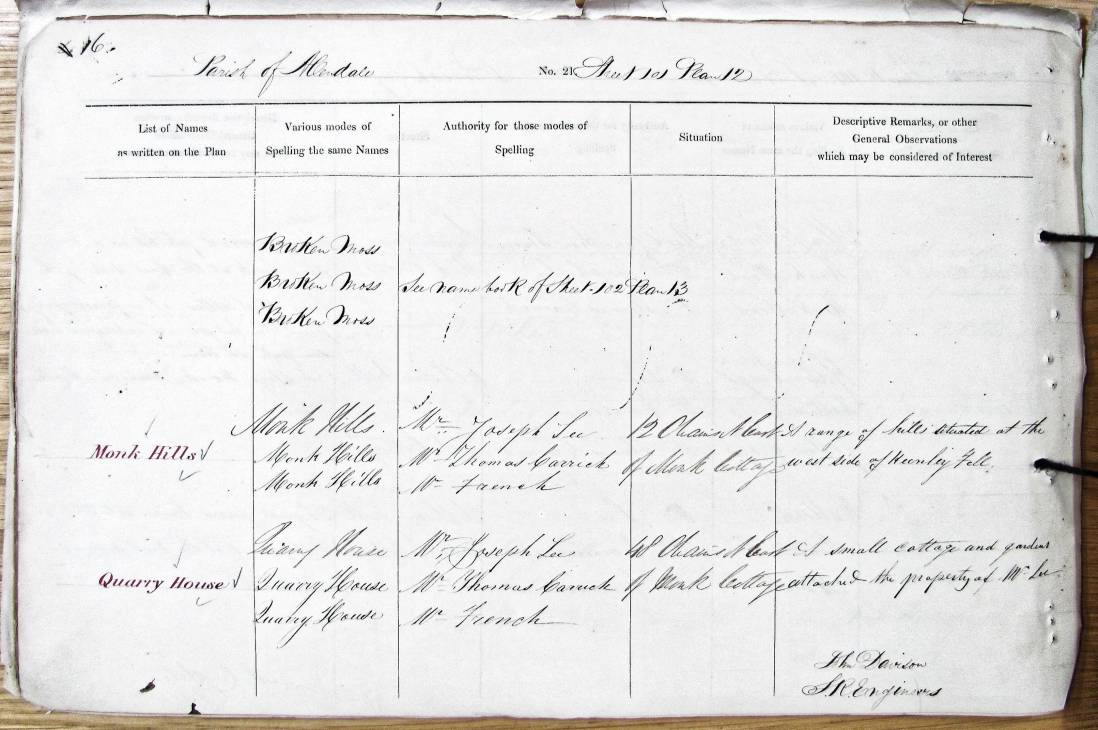 16
Parish of Allendale No. 21 Sheet 101 Plan 12
List of Names
as written on the Plan
Various modes of
Spelling the same Names
Authority for those modes of
Spelling
Situation
Descriptive Remarks, or other
General Observations
which may be considered of Interest
Broken Moss
Broken Moss See name book of Sheet 102 Plan 13
Broken Moss
Monk Hills
Monk Hills.
Monk Hills
Monk Hills
Mr Joseph Lee
Mr Thomas Carrick
Mr French
12 Chains N East
of Monk Cottage
A range of hills situated at the
west side of Keenley Fell.
Quarry House
Quarry House
Quarry House
Quarry House
Mr Joseph Lee
Mr Thomas Carrick
Mr French
48 Chains N East
of Monk Cottage
A small cottage and gardens
attached the property of Mr Lee.
John Davison
S.R. Engineers